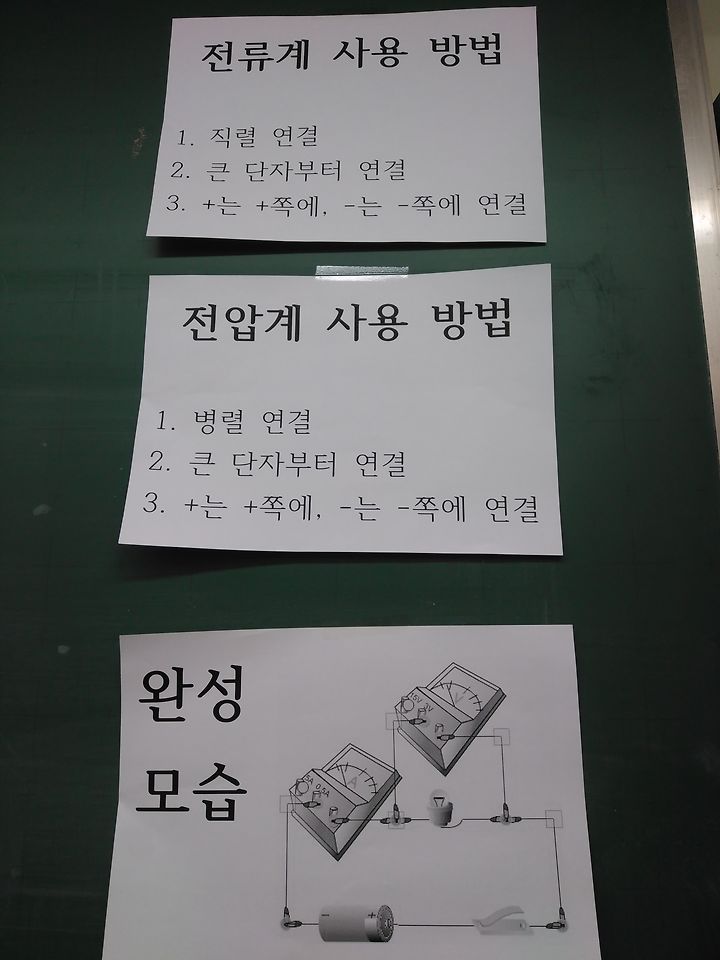 전류계 사용 방법
1. 직렬 연결
2. 큰 단자부터 연결
3. +는 +쪽에, -는 -쪽에 연결
전압계 사용 방법
1. 병렬 연결
2. 큰 단자부터 연결
3. +는 +쪽에, -는 -쪽에 연결
완성
모습
15V 3V
V
5A 0.5A
A
+